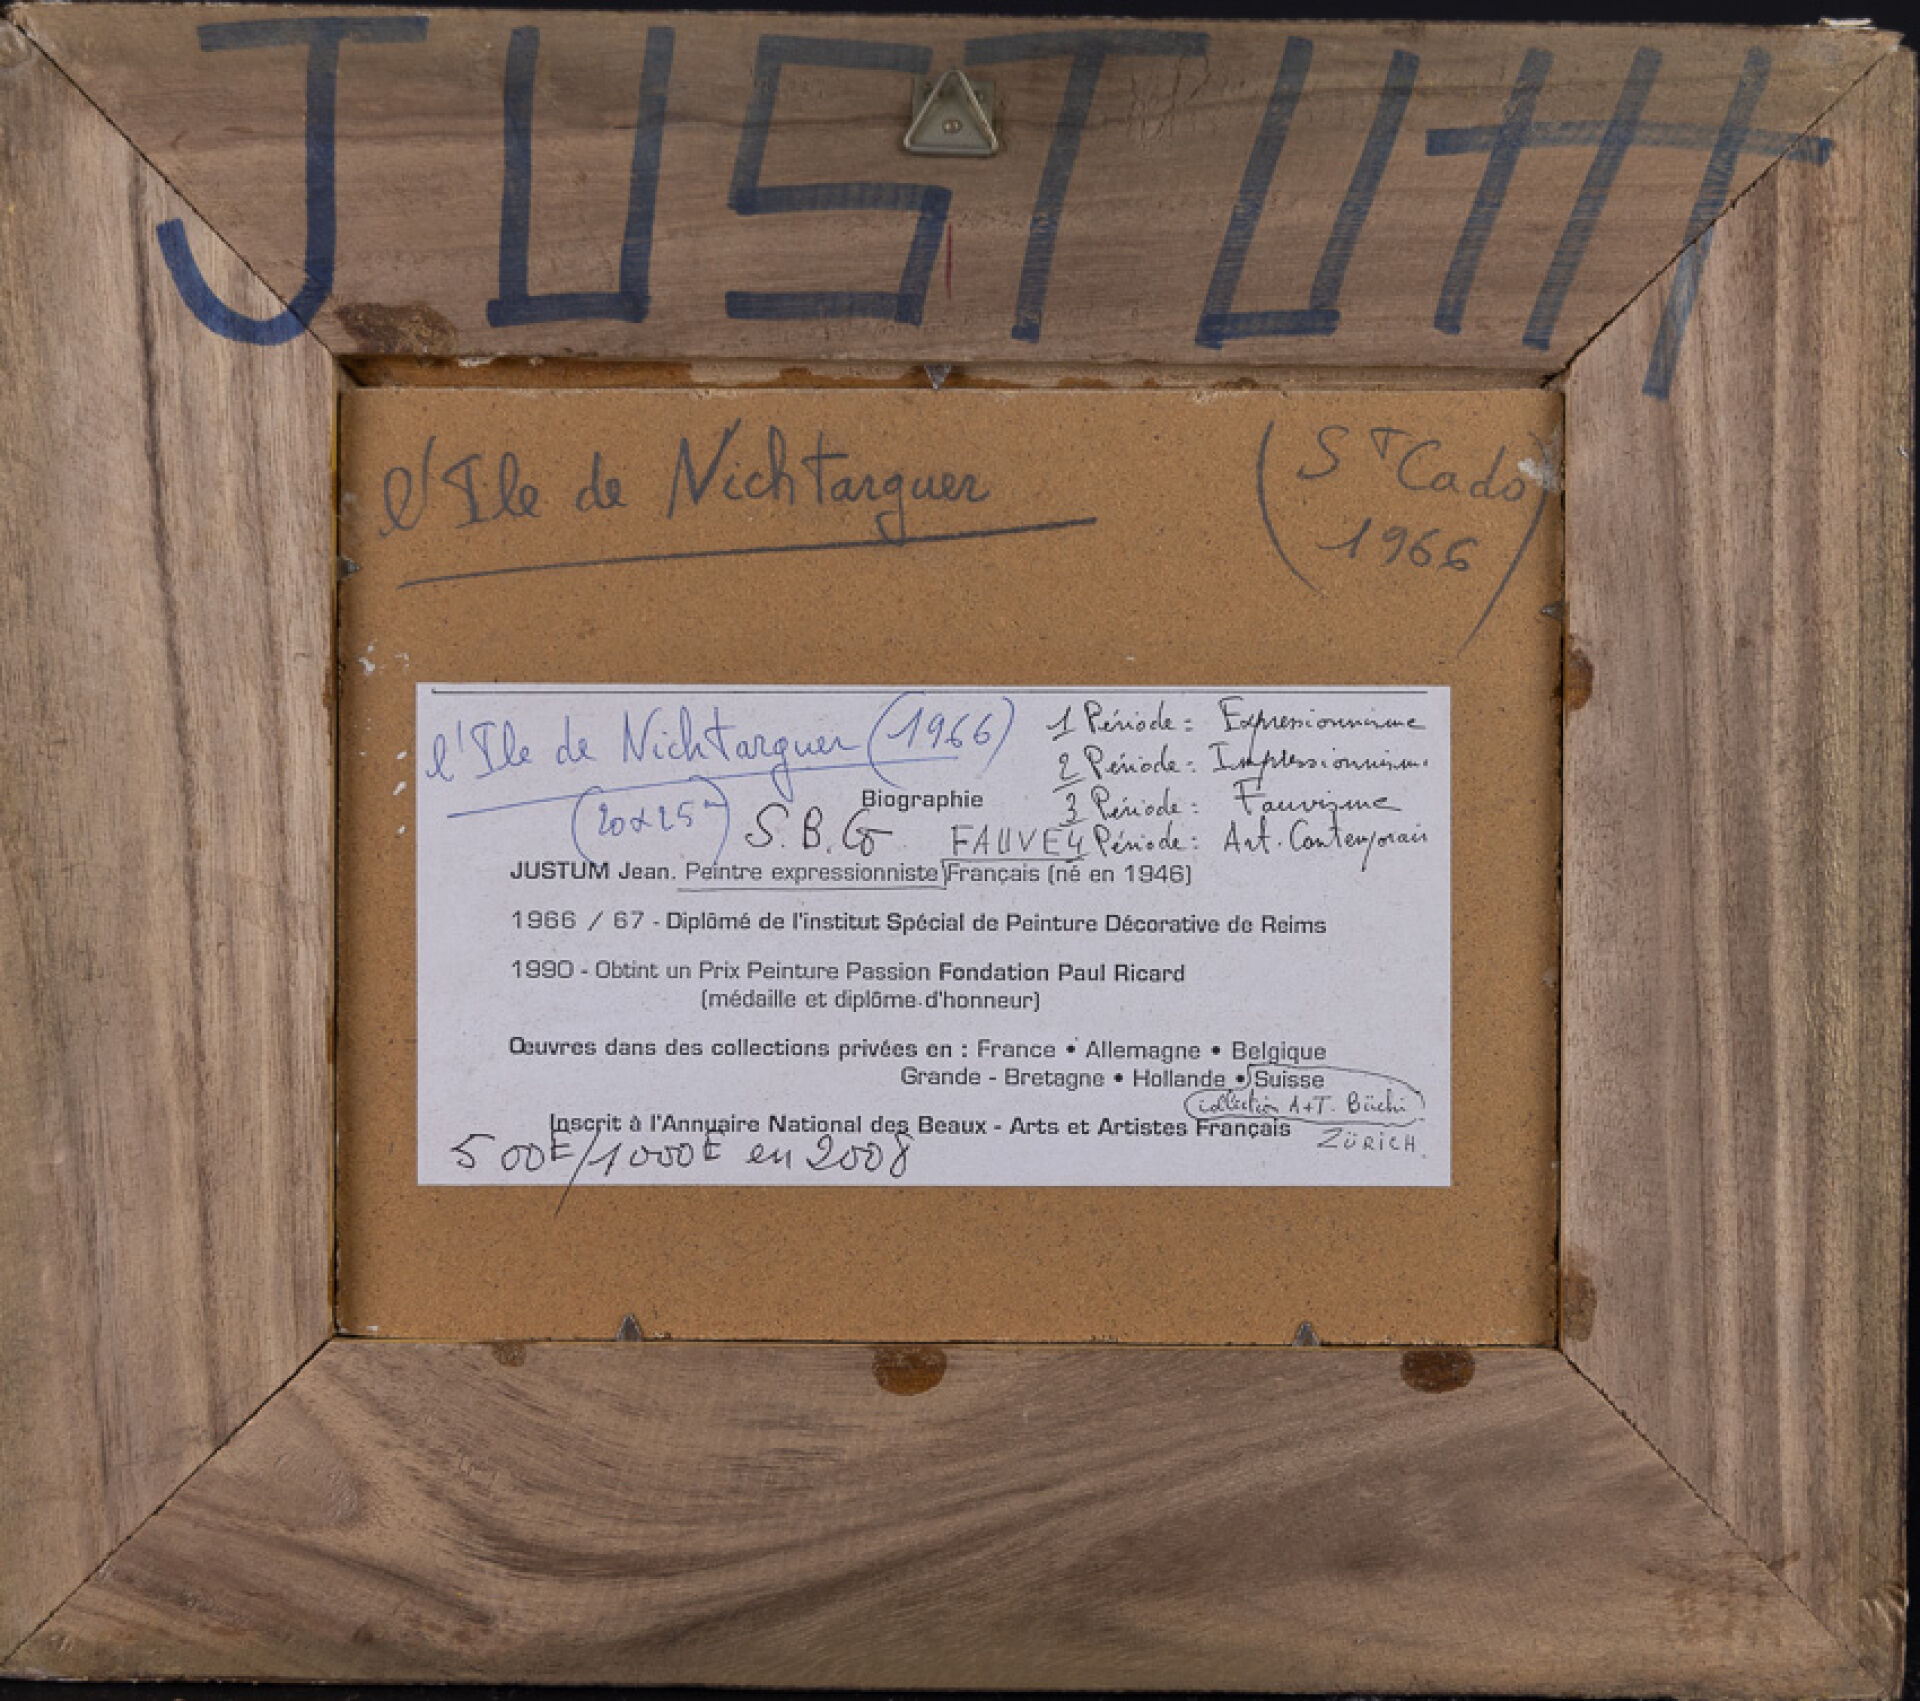 JUSTUM
l'Ile de Nichtarguer
(ST Cado
1966)
l'Ile de Nichtarguer (1966)
(20x25)
1 Période = Expressionnisme
2 Période : Impressionnism.
3 Période : Fauvisme
4 Période : Art. Contemporain
Biographie
S.B.G FAUVE
JUSTUM Jean. Peintre expressionniste Français (né en 1946)
1966 / 67 - Diplômé de l'institut Spécial de Peinture Décorative de Reims
1990 - Obtint un Prix Peinture Passion Fondation Paul Ricard
(médaille et diplôme d'honneur)
Œuvres dans des collections privées en : France • Allemagne • Belgique
Grande - Bretagne • Hollande • Suisse
collection A+T. Büchi
ZÜRICH.
Inscrit à l'Annuaire National des Beaux - Arts et Artistes Français
500E/1000E en 2008